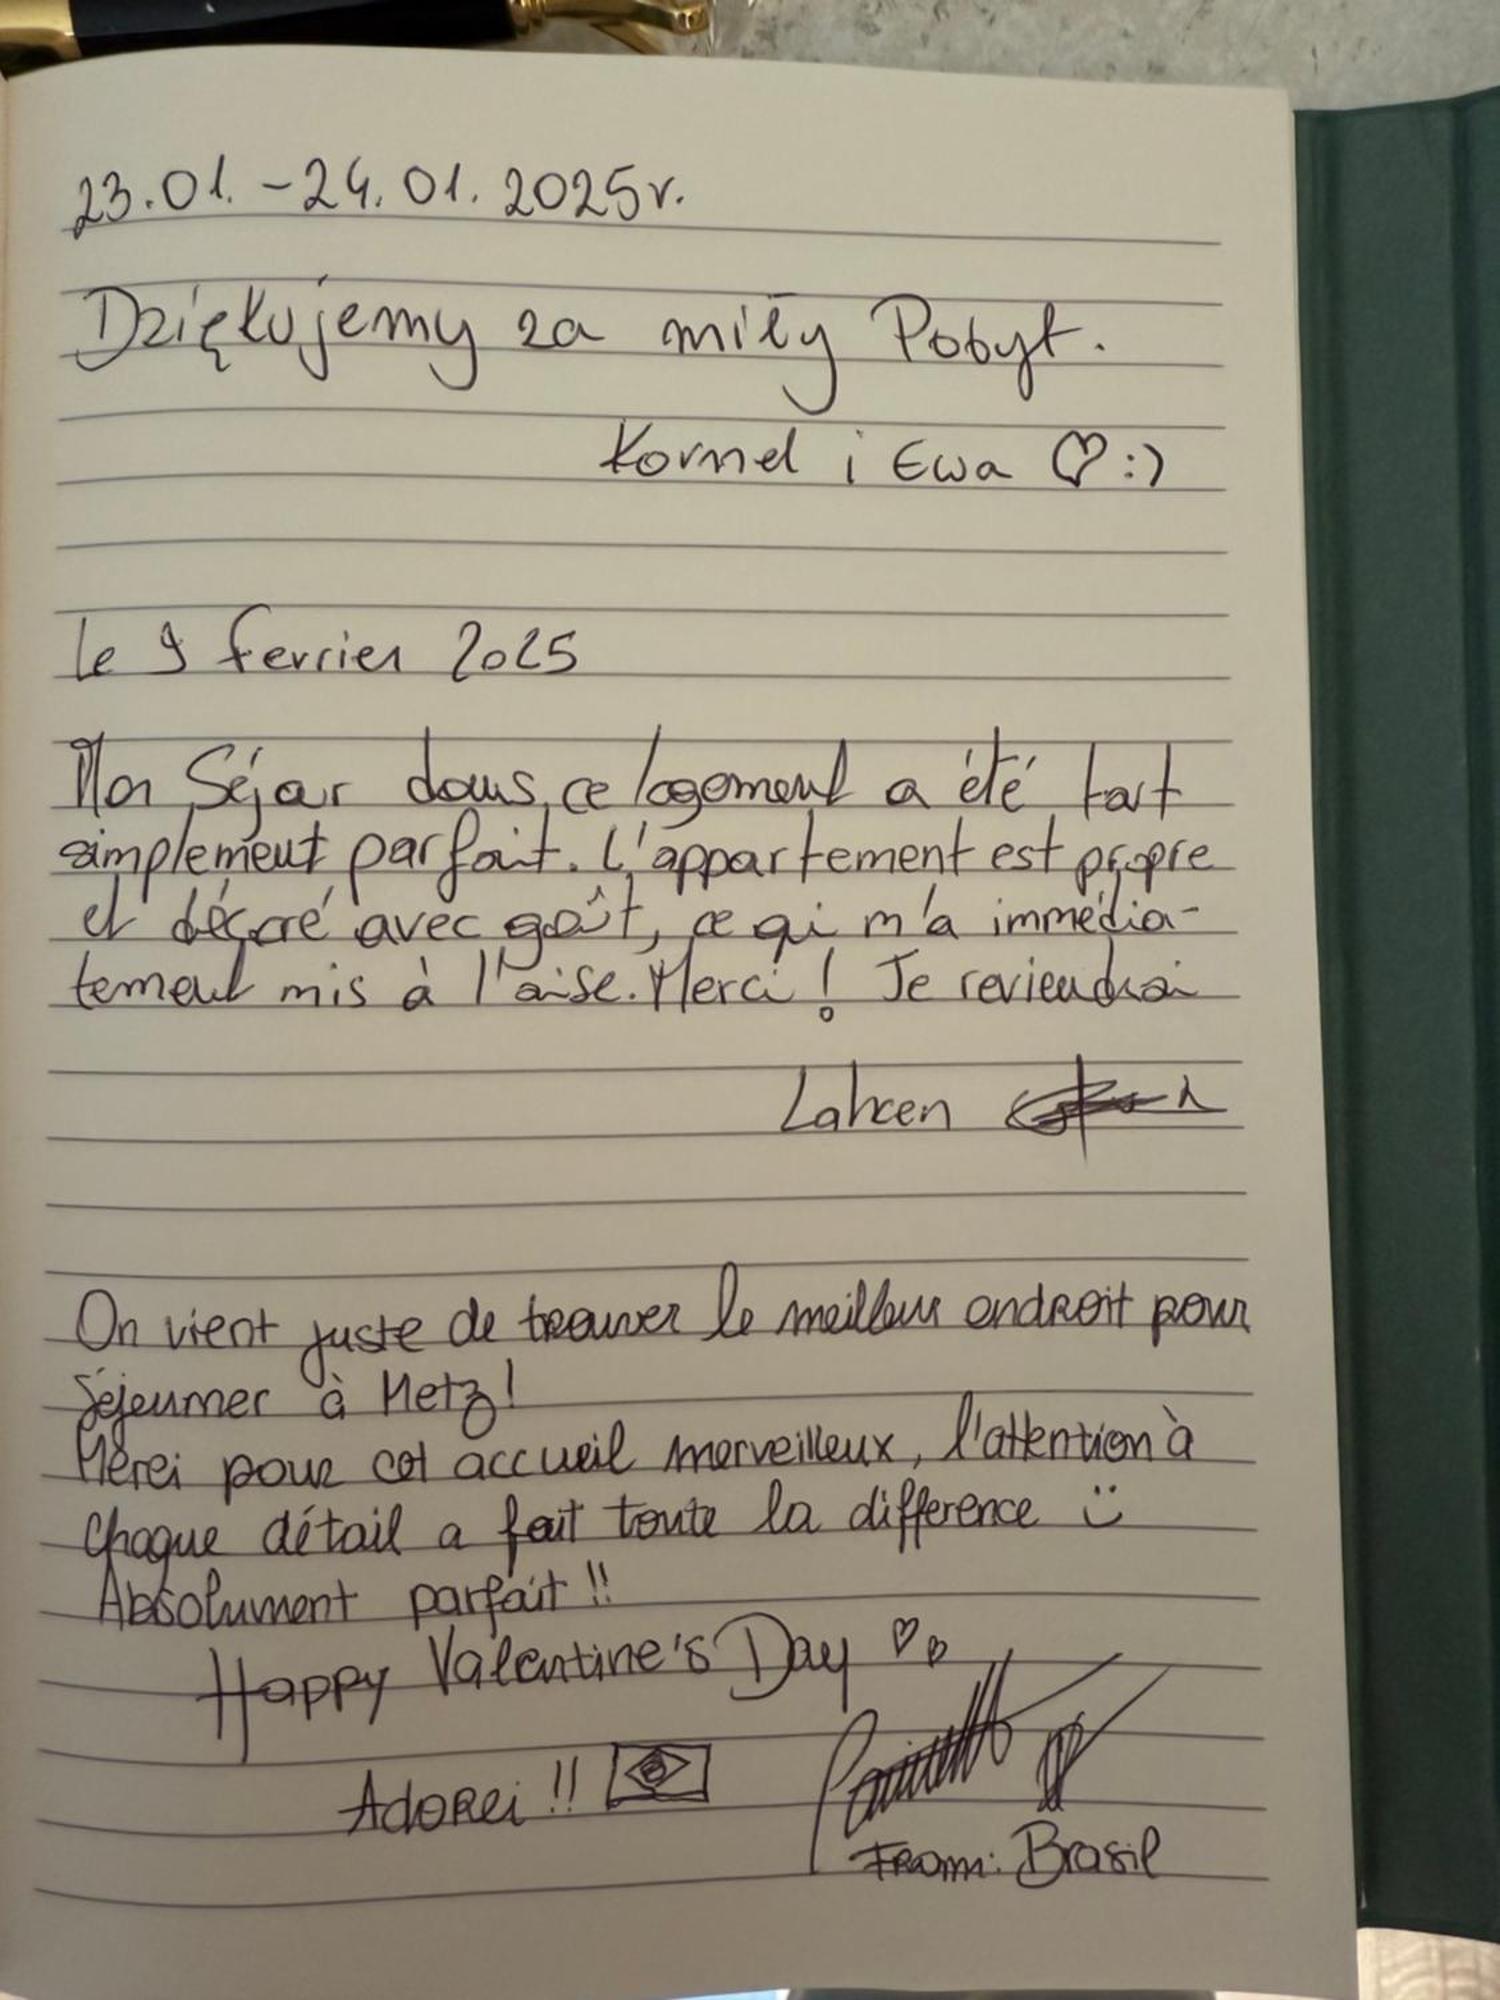 23.01. - 24.01.2025r.
Dziękujemy za miły Pobyt.
Kornel i Ewa ♡ :)
le 9 fevrier 2025
Mon Séjour dans ce logement a été tout
simplement parfait. L'appartement est propre
et décoré avec goût, ce qui m'a immédia-
tement mis à l'aise. Merci ! Je reviendrai
Lahcen
On vient juste de trouver le meilleur endroit pour
séjourner à Metz!
Merci pour cet accueil merveilleux, l'attention à
chaque détail a fait toute la difference ü
Absolument parfait !!
Happy Valentine's Day ♡♡
Adorei !!
From: Brasil